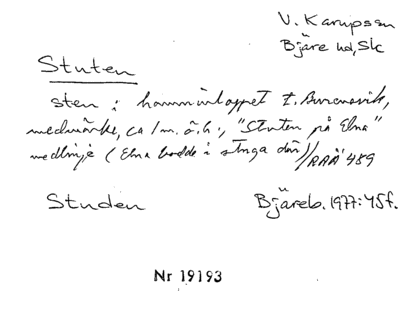 V. Karupssn
Bjäre hd, Sk
Stuten
sten i hamninloppet t.
medmärke, ca 1 m. ö. h., "Stuten på Elna"
medlinje (Elna bodde i stuga där)/RAÄ 489
Studen
Bjäreb. 1977:45f.
Nr 19193